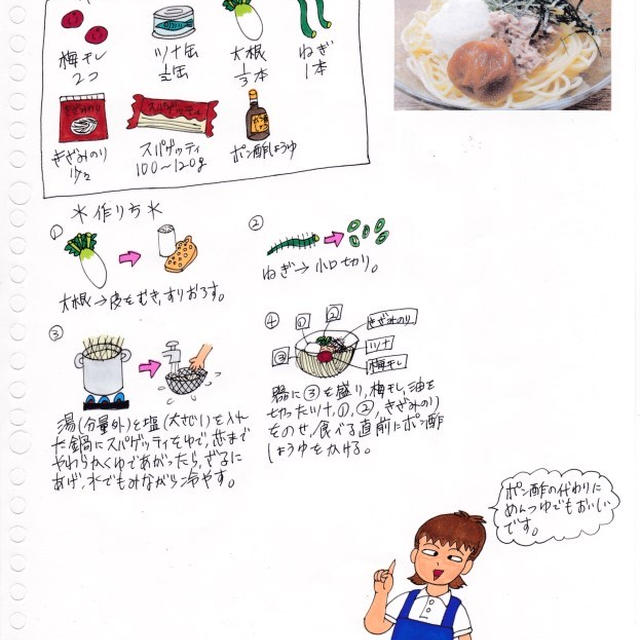 梅干し
2コ
ツナ缶
½缶
大根
⅓本
ねぎ
1本
きざみのり
少々
スパゲッティ
スパゲッティ
100〜120g
ポン酢しょうゆ
＊作り方＊
①
大根→皮をむき、すりおろす。
②
ねぎ→小口切り。
③
湯(分量外)と塩(大さじ1)を入れ
た鍋にスパゲッティをゆで、芯まで
やわらかくゆであがったら、ざるに
あげ、水でもみながら冷やす。
④
① ② きざみのり
ツナ
③ 梅干し
器に③を盛り、梅干し、油を
切ったツナ、①、②、きざみのり
をのせ、食べる直前にポン酢
しょうゆをかける。
ポン酢の代わりに
めんつゆでもおいしい
です。